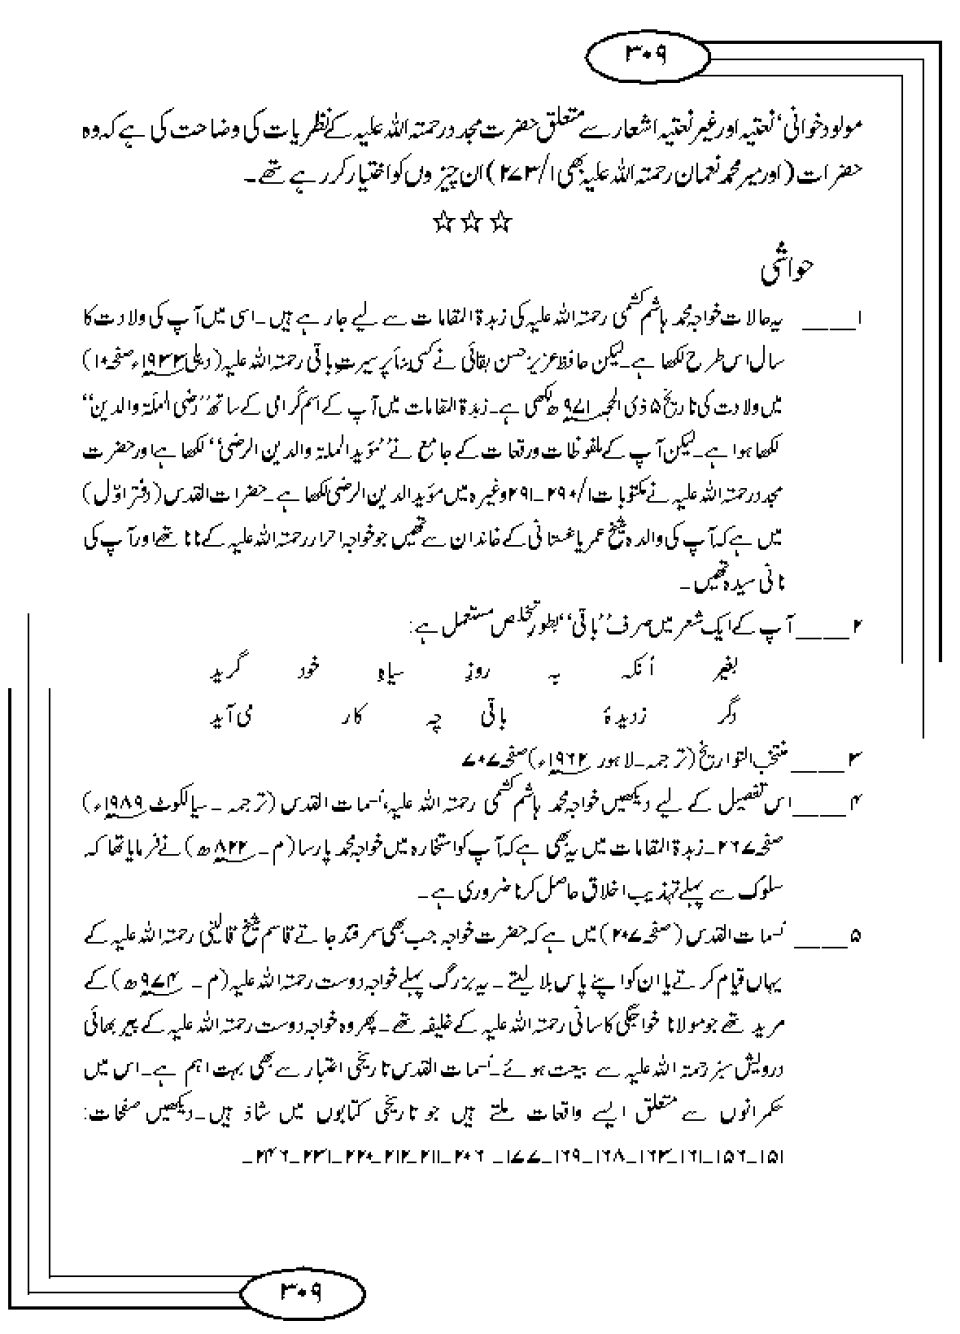 ۳۰۹
مولود خوانی، نعتیہ اور غیر نعتیہ اشعار سے متعلق حضرت مجدد رحمتہ اللہ علیہ کے نظریات کی وضاحت کی ہے کہ وہ
حضرات (اور میر محمد نعمان رحمتہ اللہ علیہ بھی ۱/۲۷۳) ان چیزوں کو اختیار کر رہے تھے۔
☆☆☆
حواشی
۱____ یہ حالات خواجہ محمد ہاشم کشمی رحمتہ اللہ علیہ کی زبدۃ المقامات سے لیے جا رہے ہیں۔ اسی میں آپ کی ولادت کا
سال اس طرح لکھا ہے۔ لیکن حافظ عزیز حسن بقائی نے کسی بنا پر سیرت باقی رحمتہ اللہ علیہ (دہلی ۱۹۳۳ء صفحہ ۱۰)
میں ولادت کی تاریخ ۵ ذی الحجہ ۹۷۱ھ لکھی ہے۔ زبدۃ المقامات میں آپ کے اسم گرامی کے ساتھ ’’رضی الملۃ والدین‘‘
لکھا ہوا ہے۔ لیکن آپ کے ملفوظات و رقعات کے جامع نے ’’مؤید الملۃ والدین الرضی‘‘ لکھا ہے اور حضرت
مجدد رحمتہ اللہ علیہ نے مکتوبات ۱/۲۹۰۔۲۹۱ وغیرہ میں مؤید الدین الرضی لکھا ہے۔ حضرات القدس (دفتر اوّل)
میں ہے کہ آپ کی والدہ شیخ عمر یاغستانی کے خاندان سے تھیں جو خواجہ احرار رحمتہ اللہ علیہ کے نانا تھے اور آپ کی
نانی سیدہ تھیں۔
۲____ آپ کے ایک شعر میں صرف ’’باقی‘‘ بطور تخلص مستعمل ہے:
بغیر آنکہ بہ روزِ سیاہِ خود گرید
دگر زدیدۂ باقی چہ کار می آید
۳____ منتخب التواریخ (ترجمہ۔ لاہور ۱۹۶۲ء) صفحہ ۷۰۷
۴____ اس تفصیل کے لیے دیکھیں خواجہ محمد ہاشم کشمی رحمتہ اللہ علیہ، نسمات القدس (ترجمہ۔ سیالکوٹ ۱۹۸۹ء)
صفحہ ۲۶۷۔ زبدۃ المقامات میں یہ بھی ہے کہ آپ کو استخارہ میں خواجہ محمد پارسا (م۔ ۸۲۲ھ) نے فرمایا تھا کہ
سلوک سے پہلے تہذیب اخلاق حاصل کرنا ضروری ہے۔
۵____ نسمات القدس (صفحہ ۲۰۷) میں ہے کہ حضرت خواجہ جب بھی سمرقند جاتے قاسم شیخ قالینی رحمتہ اللہ علیہ کے
یہاں قیام کرتے یا ان کو اپنے پاس بلا لیتے۔ یہ بزرگ پہلے خواجہ دوست رحمتہ اللہ علیہ (م۔ ۹۷۴ھ) کے
مرید تھے جو مولانا خواجگی کاسانی رحمتہ اللہ علیہ کے خلیفہ تھے۔ پھر وہ خواجہ دوست رحمتہ اللہ علیہ کے پیر بھائی
درویش سبز رحمتہ اللہ علیہ سے بیعت ہوئے۔ نسمات القدس تاریخی اعتبار سے بھی بہت اہم ہے۔ اس میں
حکمرانوں سے متعلق ایسے واقعات ملتے ہیں جو تاریخی کتابوں میں شاذ ہیں۔ دیکھیں صفحات:
۱۵۱۔۱۵۶۔۱۶۱۔۱۶۳۔۱۶۸۔۱۶۹۔۱۷۷۔ ۲۰۶۔۲۱۱۔۲۱۲۔۲۲۰۔۲۳۱۔۲۴۶۔
۳۰۹